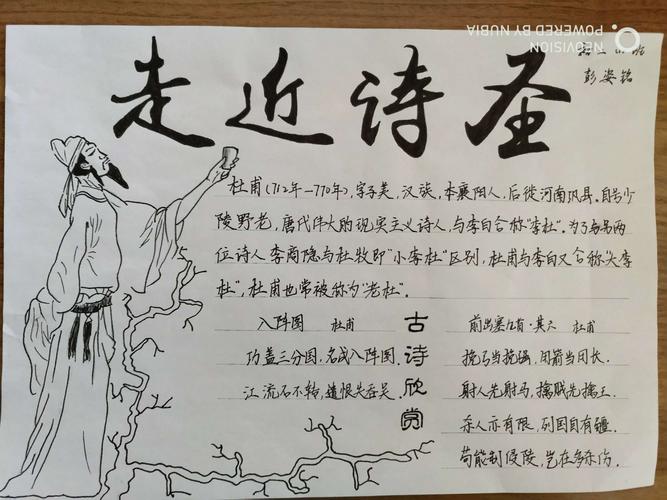 NEOVISION
POWERED BY NUBIA
彭姿铭
走近诗圣
杜甫(712年—770年),字子美,汉族,本襄阳人,后徙河南巩县.自号少
陵野老,唐代伟大的现实主义诗人,与李白合称"李杜".为了与另两
位诗人李商隐与杜牧即"小李杜"区别,杜甫与李白又合称"大李
杜",杜甫也常被称为"老杜".
入阵图 杜甫
功盖三分国,名成入阵图.
江流石不转,遗恨失吞吴.
古诗欣赏
前出塞九首·其六 杜甫
挽弓当挽强,用箭当用长.
射人先射马,擒贼先擒王.
杀人亦有限,列国自有疆.
苟能制侵陵,岂在多杀伤.